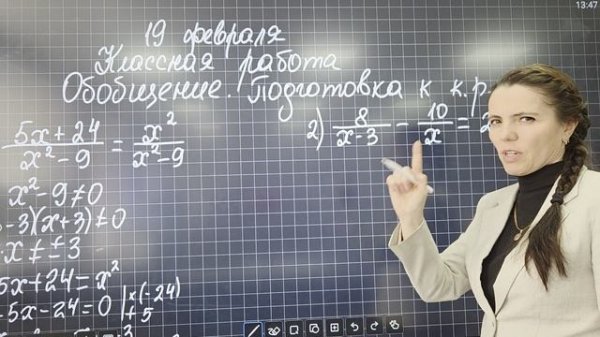 13:47
19 февраля
Классная работа
Обобщение. Подготовка к к.р.
5x+24/x²-9 = x²/x²-9
2) 8/x-3 - 10/x = 2
x²-9≠0
-3)(x+3)≠0
x≠±3
5x+24=x²
-5x-24=0 | x(-24)
+5